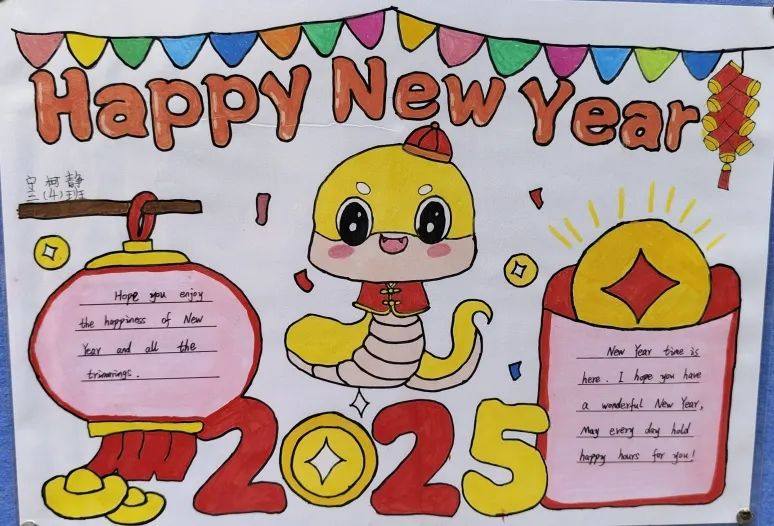 Happy New Year
柯静
三(4)班
Hope you enjoy
the happiness of New
Year and all the
trimmings.
2025
New Year time is
here. I hope you have
a wonderful New Year,
May every day hold
happy hours for you!